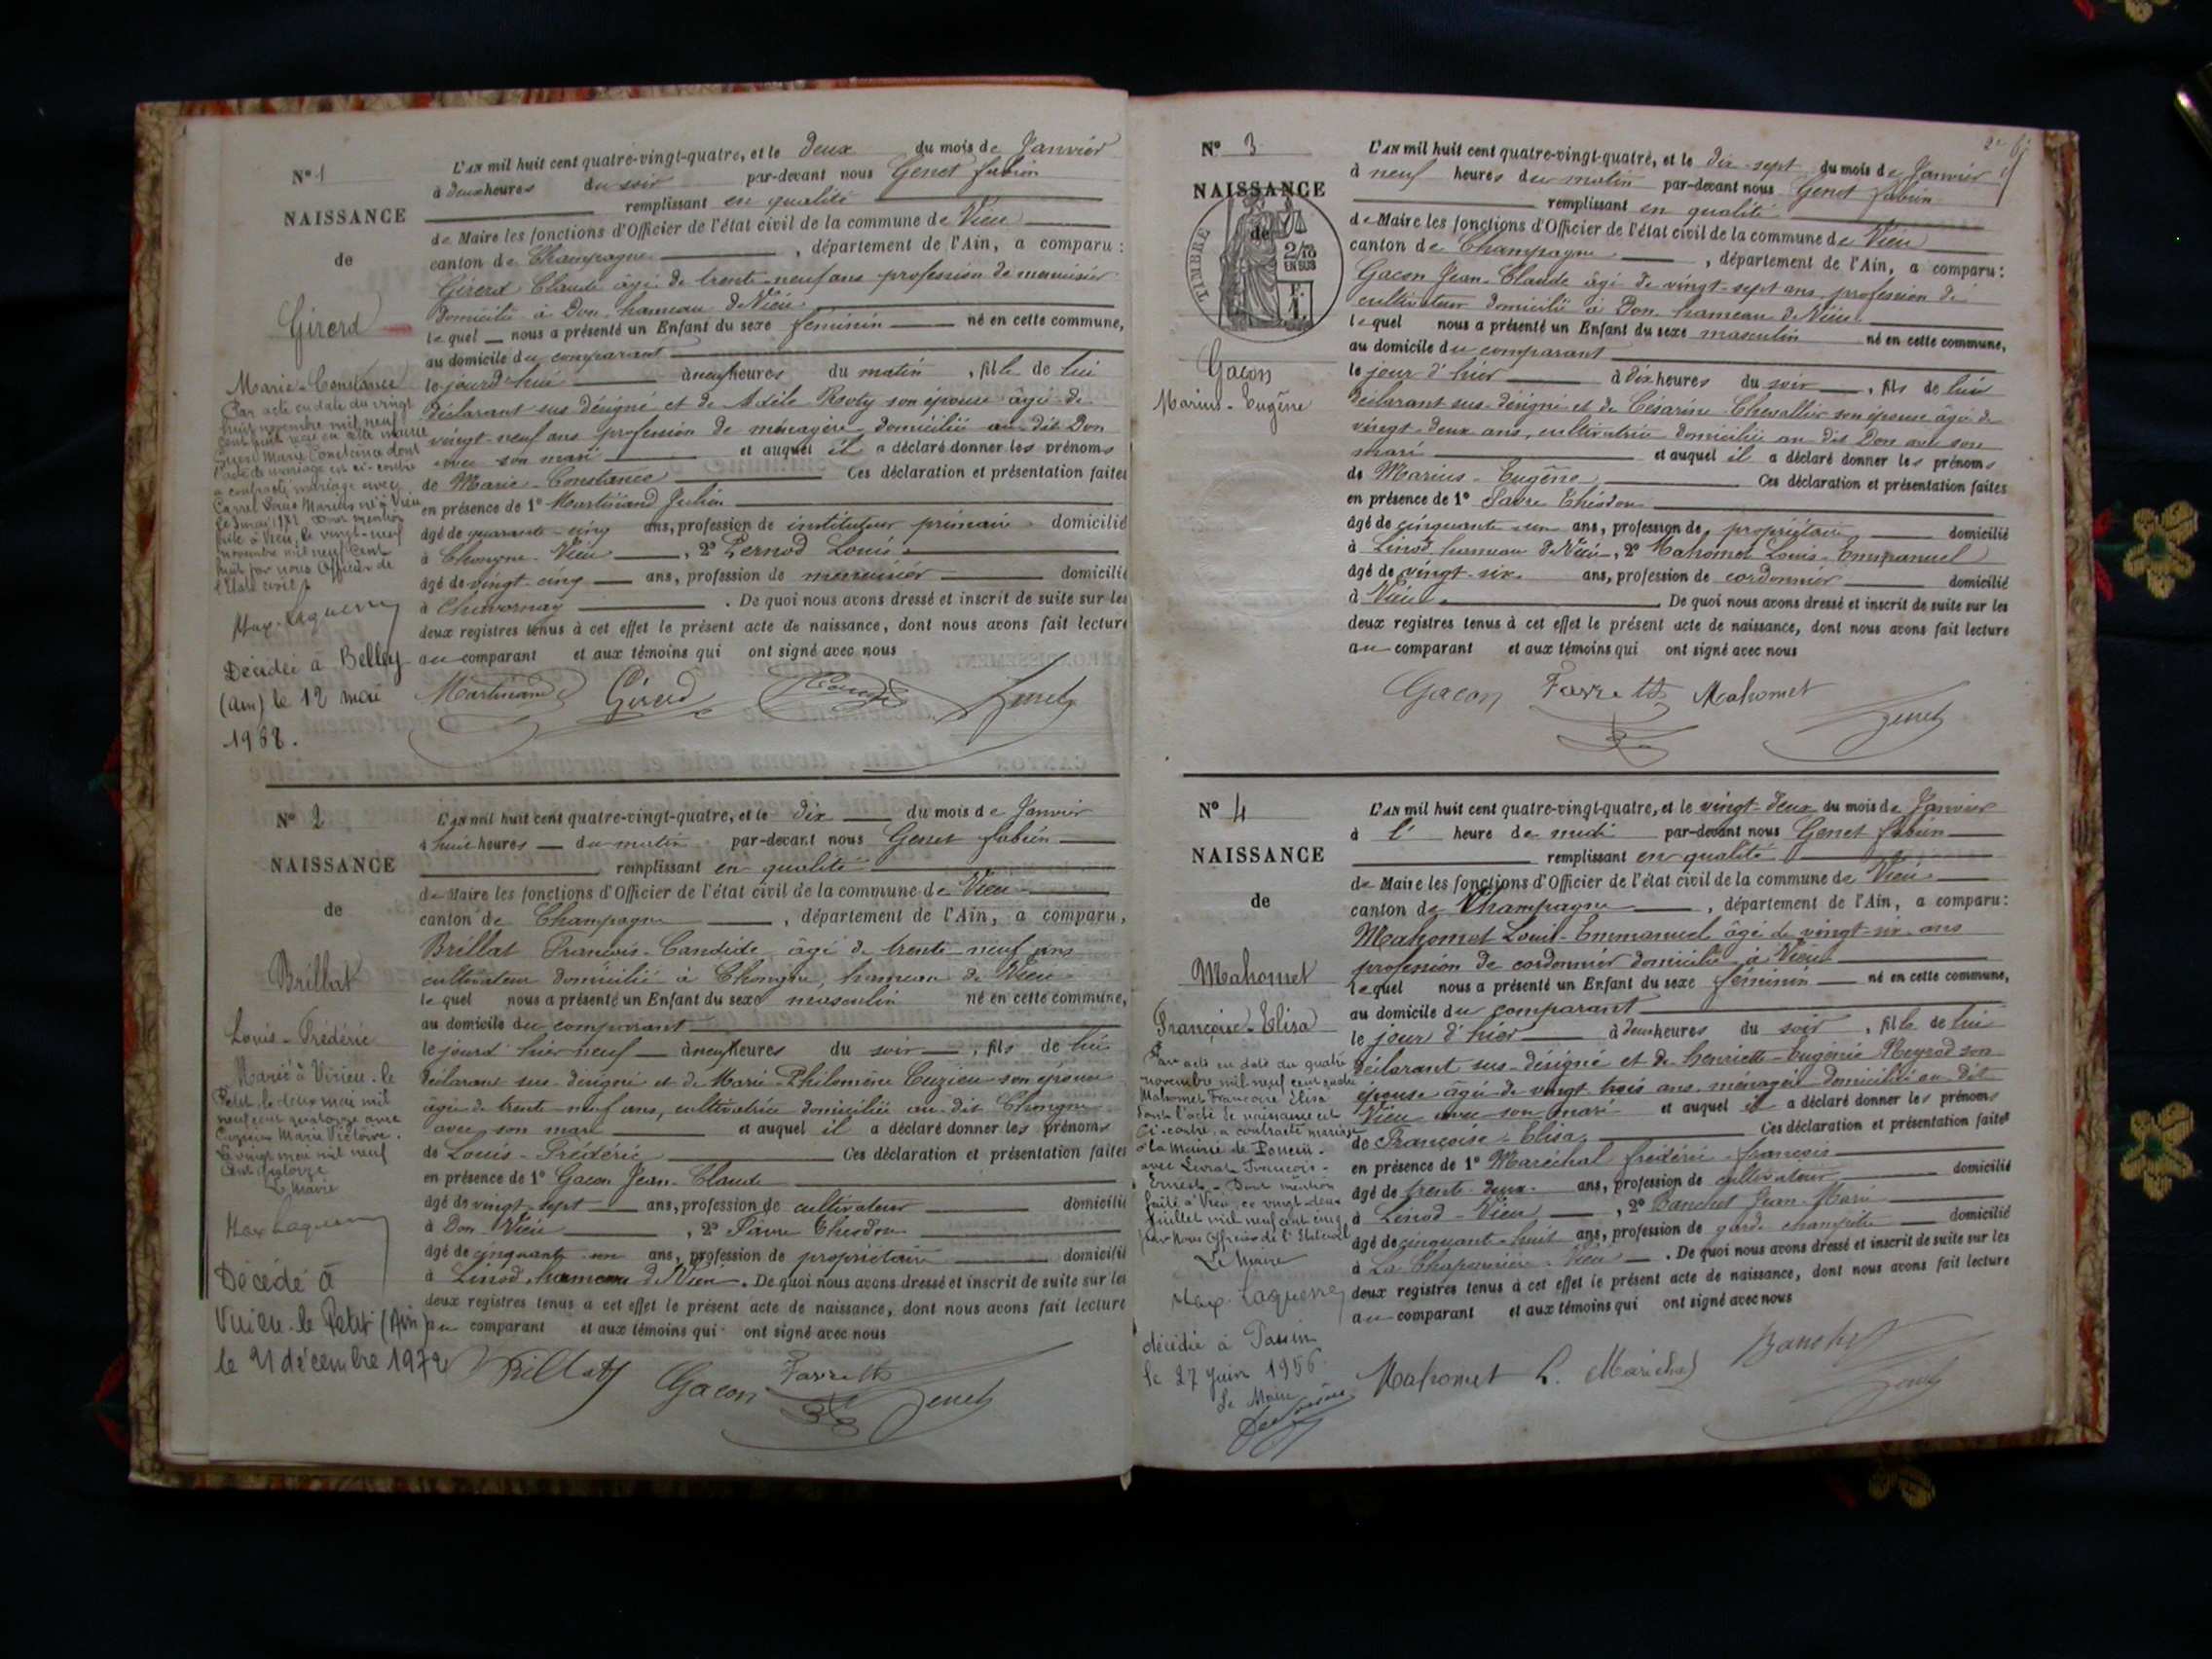 N° 1
NAISSANCE
de
Girerd
Marie-Constance
Par acte en date du vingt
neuf novembre mil neuf
cent huit reçu en cette mairie
Marie Constance dont
l'acte de naissance est ci-contre
a contracté mariage avec
Marius né à Vieu
Dont mention
faite à Vieu, le vingt-neuf
novembre mil neuf cent
huit par nous Officier de
l'Etat civil
Décédée à Belley
(Ain) le 12 mai
L'AN mil huit cent quatre-vingt-quatre, et le deux du mois de Janvier
à deux heures du soir par-devant nous Genet fabien
remplissant en qualité
de Maire les fonctions d'Officier de l'état civil de la commune de Vieu
canton de Champagne, département de l'Ain, a comparu :
Girerd Claude âgé de trente-neuf ans profession de menuisier
domicilié à Don hameau de Vieu
lequel nous a présenté un Enfant du sexe féminin né en cette commune,
au domicile du comparant
le jourd'hui à neuf heures du matin, fille de lui
déclarant sus-désigné et de Adèle son épouse âgée de
vingt-neuf ans profession de ménagère domiciliée au dit Don
avec son mari et auquel il a déclaré donner les prénoms
de Marie-Constance Ces déclaration et présentation faites
en présence de 1° Martinand Julien
âgé de quarante-cinq ans, profession de instituteur primaire domicilié
à Chongne-Vieu, 2° Pernod Louis
âgé de vingt-cinq ans, profession de menuisier domicilié
à Chavornay. De quoi nous avons dressé et inscrit de suite sur les
deux registres tenus à cet effet le présent acte de naissance, dont nous avons fait lecture
au comparant et aux témoins qui ont signé avec nous
Martinand Girerd Genet
N° 2
NAISSANCE
de
Brillat
Louis-Frédéric
Marié à Virieu-le
Petit, le deux mai mil
neuf cent quatorze avec
Cuzieu Marie Victoire.
Le vingt mai mil neuf
cent quatorze
Le Maire
Décédé à
Virieu-le Petit (Ain)
le 21 décembre 1972
L'AN mil huit cent quatre-vingt-quatre, et le dix du mois de Janvier
à huit heures du matin par-devant nous Genet fabien
remplissant en qualité
de Maire les fonctions d'Officier de l'état civil de la commune de Vieu
canton de Champagne, département de l'Ain, a comparu,
Brillat François-Candide âgé de trente-neuf ans
cultivateur domicilié à Chongne, hameau de Vieu
lequel nous a présenté un Enfant du sexe masculin né en cette commune,
au domicile du comparant
le jourd'hier neuf à neuf heures du soir, fils de lui
déclarant sus-désigné et de Marie-Philomène Cuzieu son épouse
âgée de trente-neuf ans, cultivatrice domiciliée au dit Chongne
avec son mari et auquel il a déclaré donner les prénoms
de Louis-Frédéric Ces déclaration et présentation faites
en présence de 1° Gacon Jean-Claude
âgé de vingt-sept ans, profession de cultivateur domicilié
à Don-Vieu, 2°
âgé de cinquante-un ans, profession de propriétaire domicilié
à Linod, hameau de Vieu. De quoi nous avons dressé et inscrit de suite sur les
deux registres tenus à cet effet le présent acte de naissance, dont nous avons fait lecture
au comparant et aux témoins qui ont signé avec nous
Brillat Gacon Genet
N° 3
NAISSANCE
de
TIMBRE
2/10
EN SUS
F.
1.
Gacon
Marius-Eugène
L'AN mil huit cent quatre-vingt-quatre, et le dix-sept du mois de Janvier
à neuf heures du matin par-devant nous Genet fabien
remplissant en qualité
de Maire les fonctions d'Officier de l'état civil de la commune de Vieu
canton de Champagne, département de l'Ain, a comparu :
Gacon Jean-Claude âgé de vingt-sept ans profession de
cultivateur domicilié à Don hameau de Vieu
lequel nous a présenté un Enfant du sexe masculin né en cette commune,
au domicile du comparant
le jour d'hier à dix heures du soir, fils de lui
déclarant sus-désigné et de Césarine Chevallier son épouse âgée de
vingt-deux ans, cultivatrice domiciliée au dit Don avec son
mari et auquel il a déclaré donner les prénoms
de Marius-Eugène Ces déclaration et présentation faites
en présence de 1°
âgé de cinquante-un ans, profession de propriétaire domicilié
à Linod hameau de Vieu, 2° Mahomet Louis-Emmanuel
âgé de vingt-six ans, profession de cordonnier domicilié
à Vieu. De quoi nous avons dressé et inscrit de suite sur les
deux registres tenus à cet effet le présent acte de naissance, dont nous avons fait lecture
au comparant et aux témoins qui ont signé avec nous
Gacon Mahomet
Genet
N° 4
NAISSANCE
de
Mahomet
Françoise-Elisa
Par acte en date du quatre
novembre mil neuf cent quatre
Mahomet Françoise Elisa
dont l'acte de naissance est
ci-contre, a contracté mariage
à la Mairie de
avec François-
Ernest. Dont mention
faite à Vieu, ce vingt-deux
juillet mil neuf cent cinq
par Nous Officier de l'Etat civil
Le Maire
décédée à Passin
le 27 juin 1956
Le Maire
L'AN mil huit cent quatre-vingt-quatre, et le vingt-deux du mois de Janvier
à l' heure de midi par-devant nous Genet fabien
remplissant en qualité
de Maire les fonctions d'Officier de l'état civil de la commune de Vieu
canton de Champagne, département de l'Ain, a comparu :
Mahomet Louis-Emmanuel âgé de vingt-six ans
profession de cordonnier domicilié à Vieu
lequel nous a présenté un Enfant du sexe féminin né en cette commune,
au domicile du comparant
le jour d'hier à deux heures du soir, fille de lui
déclarant sus-désigné et de Henriette-Eugénie son
épouse âgée de vingt-trois ans ménagère domiciliée au dit
Vieu avec son mari et auquel il a déclaré donner les prénoms
de Françoise-Elisa Ces déclaration et présentation faites
en présence de 1° Maréchal frédéric-françois
âgé de trente-deux ans, profession de cultivateur domicilié
à Linod-Vieu, 2° Banchet Jean-Marie
âgé de cinquante-huit ans, profession de garde champêtre domicilié
à Vieu. De quoi nous avons dressé et inscrit de suite sur les
deux registres tenus à cet effet le présent acte de naissance, dont nous avons fait lecture
au comparant et aux témoins qui ont signé avec nous
Mahomet L. Maréchal Banchet
Genet